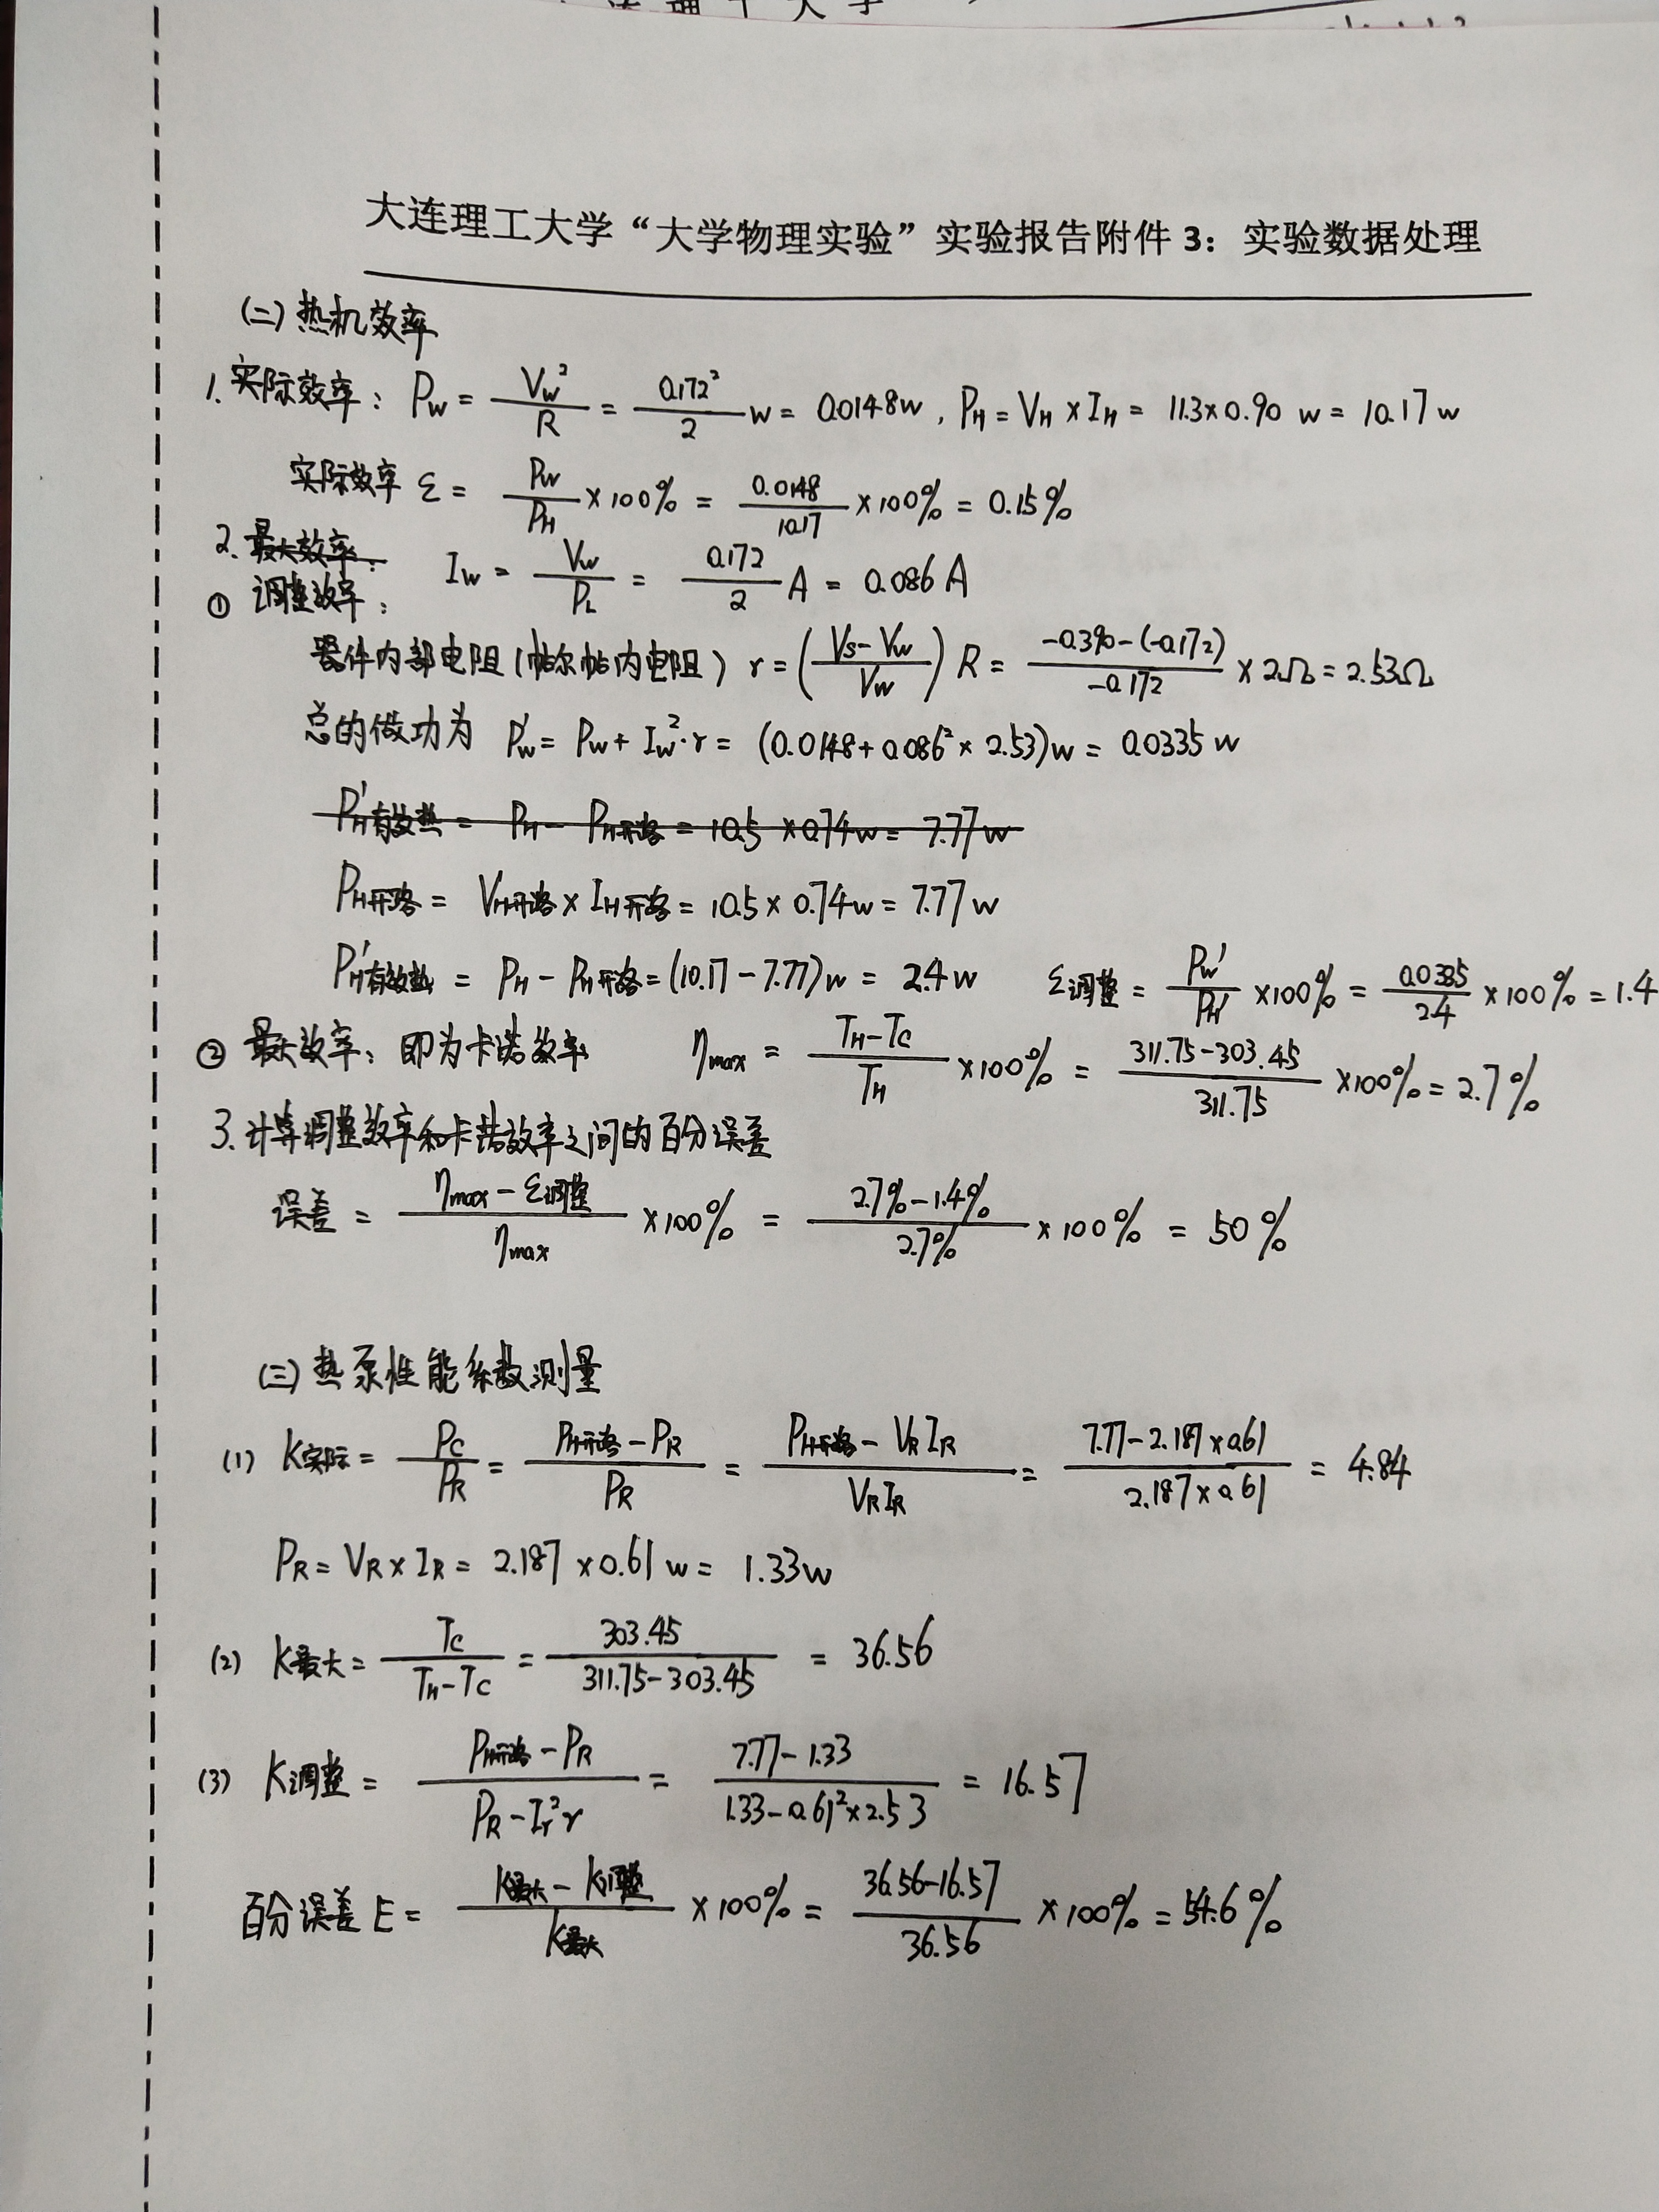 大连理工大学“大学物理实验”实验报告附件 3：实验数据处理
(二) 热机效率
1. 实际效率： P_W = V_W²/R = 0.172²/2 w = 0.0148w , P_H = V_H × I_H = 11.3×0.90 w = 10.17 w
实际效率 ε = P_W/P_H ×100% = 0.0148/10.17 ×100% = 0.15%
2. 最大效率：
① 调整效率： I_W = V_W/P_L = 0.172/2 A = 0.086 A
器件内部电阻(帕尔帖内电阻) r = (V_S-V_W/V_W) R = -0.390-(-0.172)/-0.172 × 2Ω = 2.53Ω
总的做功为 P_W' = P_W + I_W²·r = (0.0148+0.086²×2.53)w = 0.0335 w
P_H'有效热 = P_H - P_H开路 = 10.5 ×0.74w = 7.77 w
P_H开路 = V_H开路 × I_H开路 = 10.5 × 0.74w = 7.77 w
P_H'有效热 = P_H - P_H开路 = (10.17-7.77)w = 2.4 w ε调整 = P_W'/P_H' ×100% = 0.0335/2.4 ×100% = 1.4
② 最大效率：即为卡诺效率 η_max = T_H-T_C/T_H ×100% = 311.75-303.45/311.75 ×100% = 2.7%
3. 计算调整效率和卡诺效率之间的百分误差
误差 = η_max - ε调整/η_max ×100% = 2.7%-1.4%/2.7% ×100% = 50%
(三) 热泵性能系数测量
(1) K实际 = P_C/P_R = P_H开路 - P_R/P_R = P_H开路 - V_R I_R/V_R I_R = 7.77-2.187×0.61/2.187×0.61 = 4.84
P_R = V_R × I_R = 2.187 ×0.61 w = 1.33w
(2) K最大 = T_C/T_H-T_C = 303.45/311.75-303.45 = 36.56
(3) K调整 = P_H开路 - P_R/P_R - I_r² r = 7.77-1.33/1.33-0.61²×2.53 = 16.57
百分误差 E = K最大 - K调整/K最大 ×100% = 36.56-16.57/36.56 ×100% = 54.6%